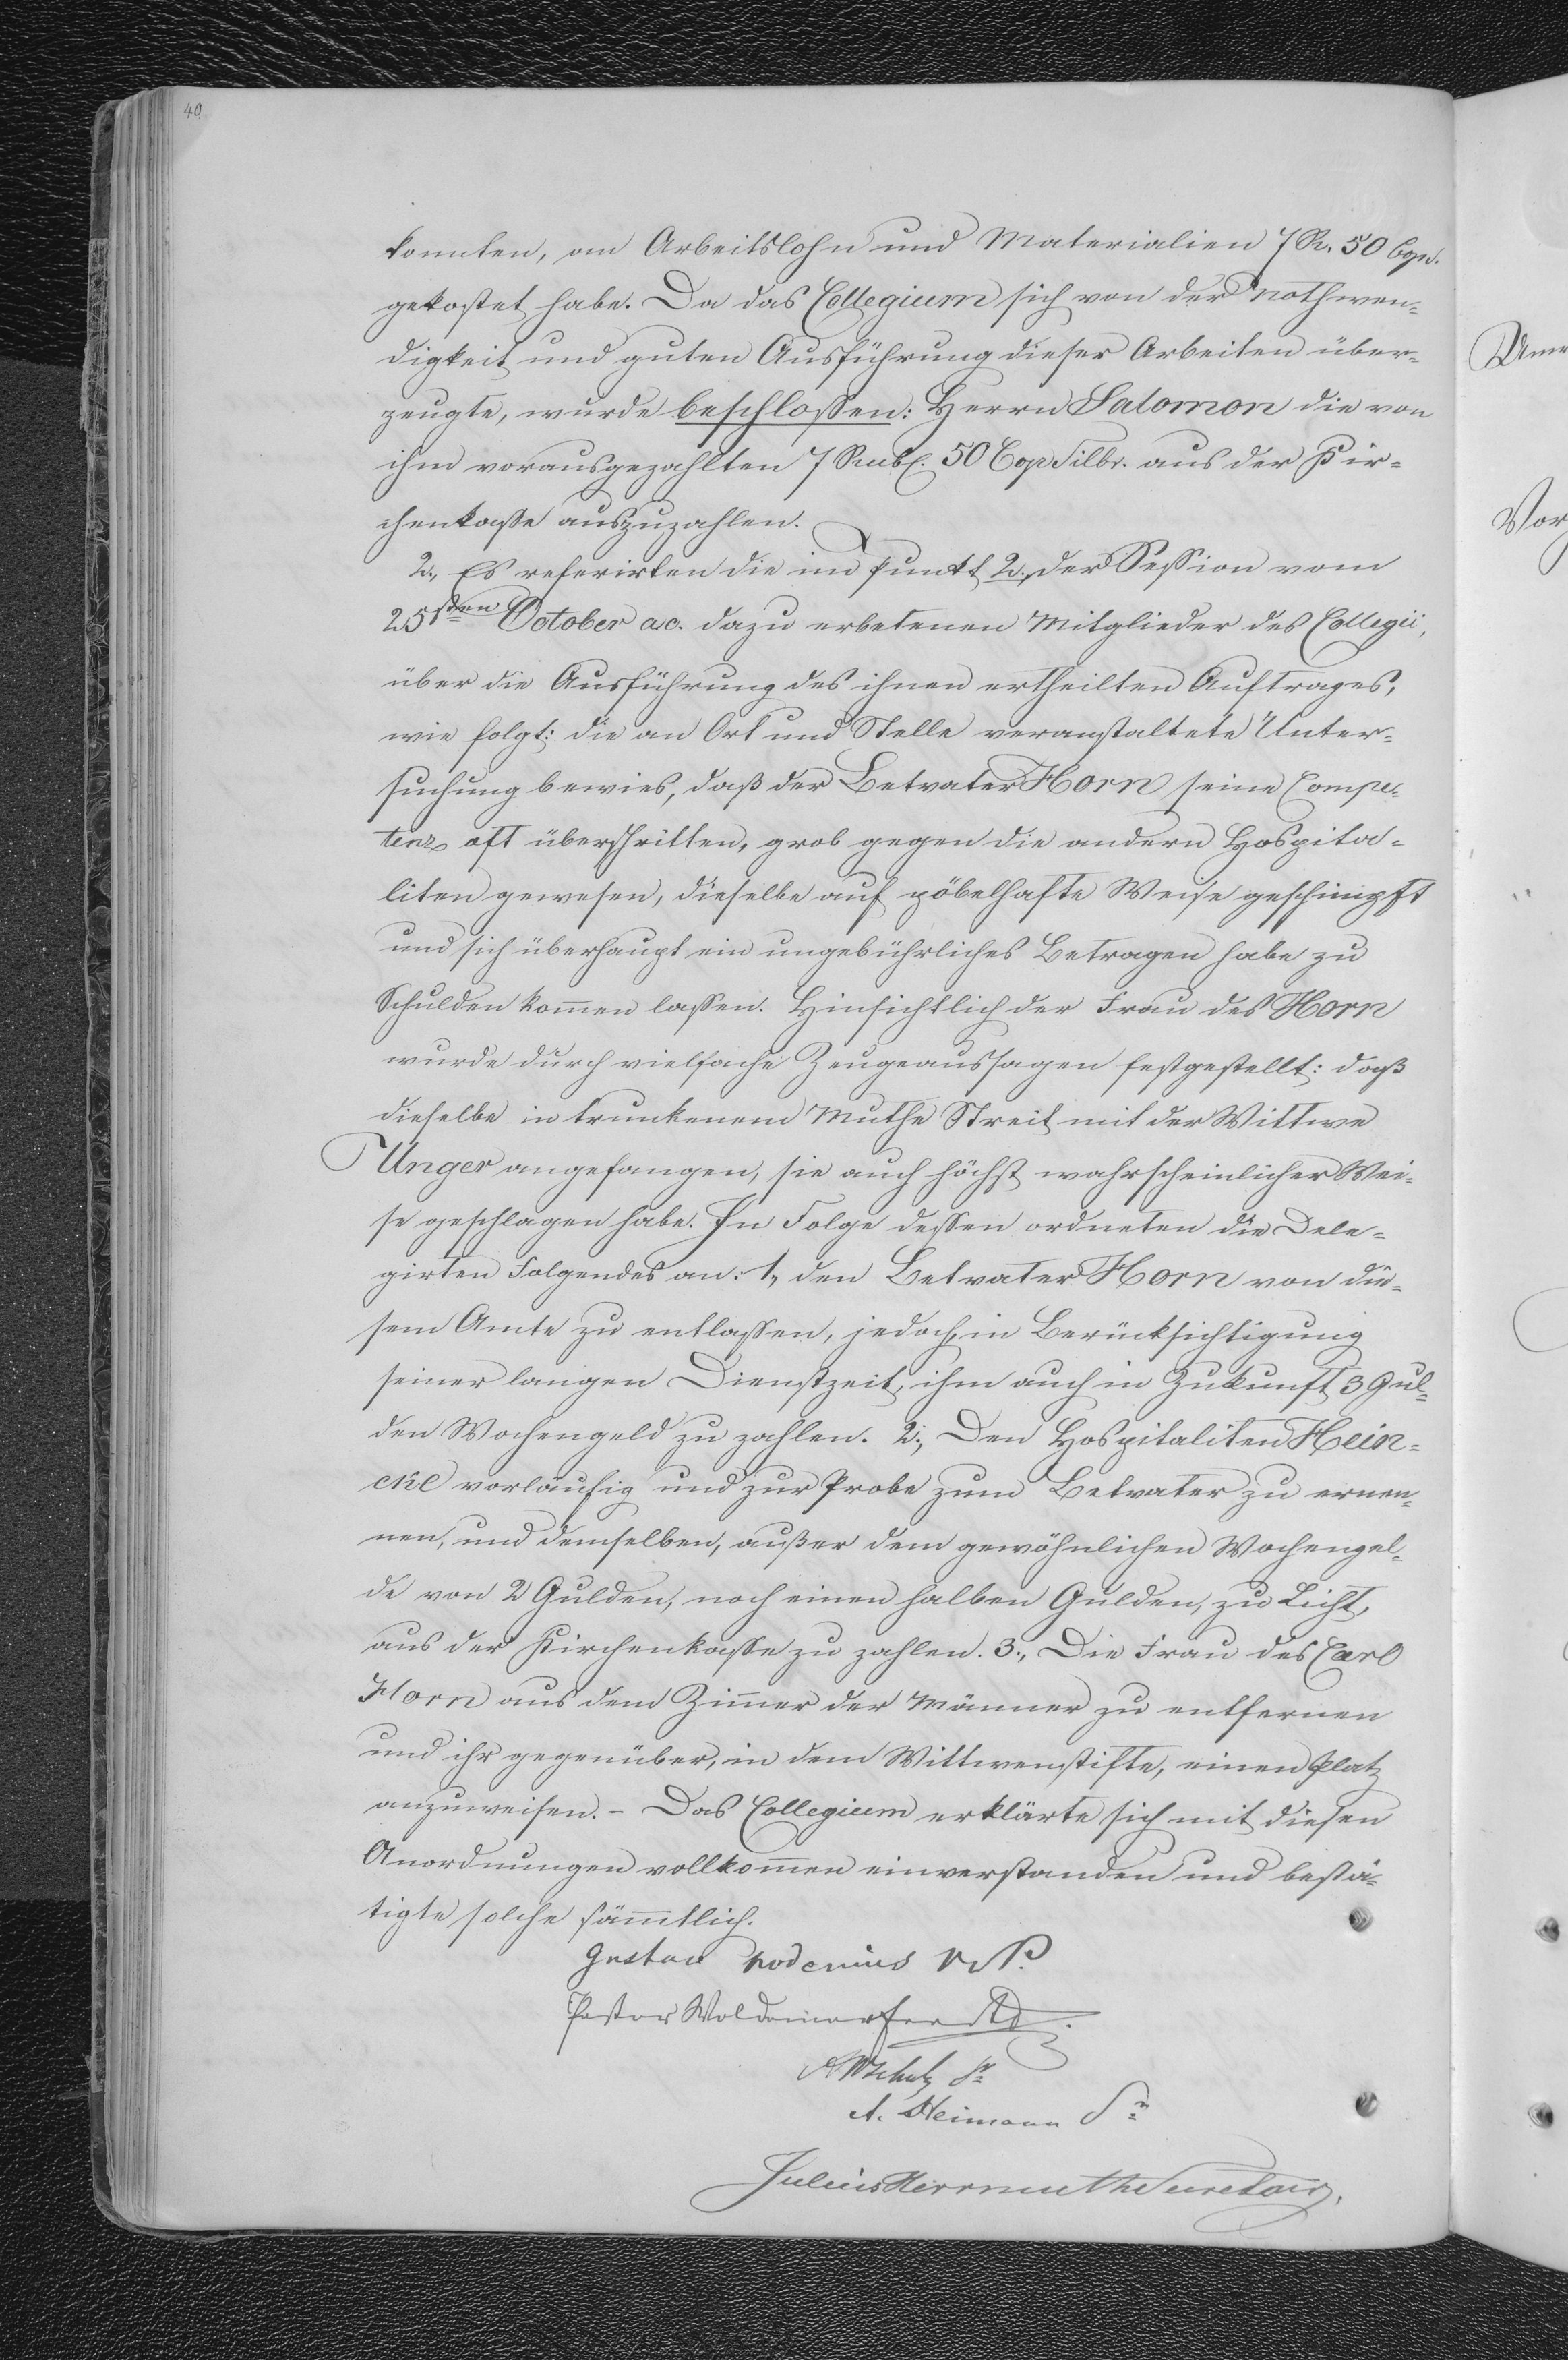 40.
konnten, an Arbeitslohn und Materialien 7 R. 50 Cop.
gekostet habe. Da das Collegium sich von der Nothwen-
digkeit und guten Ausführung dieser Arbeiten über-
zeugte, wurde beschloßen: Herrn Salomon die von
ihm vorausgezahlten 7 Rubl. 50 Cop Silbr. aus der Kir-
chenkaße auszuzahlen.
2., Es referirten die im Punkt 2., der Seßion vom
25sten October a.c. dazu erbetenen Mitglieder des Collegii,
über die Ausführung des ihnen ertheilten Auftrages,
wie folgt: die an Ort und Stelle veranstaltete Unter-
suchung bewies, daß der Betvater Horn seine Compe-
tenz oft überschritten, grob gegen die andern Hospita-
liten gewesen, dieselbe auf pöbelhafte Weise geschimpft
und sich überhaupt ein ungebührliches Betragen habe zu
Schulden kom̅en laßen. Hinsichtlich der Frau des Horn
wurde durch vielfache Zeugeaussagen festgestellt: daß
dieselbe in trunkenem Muthe Streit mit der Wittwe
Unger angefangen, sie auch höchst wahrscheinlicher Wei-
se geschlagen habe. In Folge deßen ordneten die Dele-
girten Folgendes an: 1., den Betvater Horn von die-
sem Amte zu entlaßen, jedoch, in Berücksichtigung
seiner langen Dienstzeit, ihm auch in Zukunft 3 Gul-
den Wochengeld zu zahlen. 2., Den Hospitaliten Hein-
cke vorläufig und zur Probe zum Betvater zu ernen-
nen, und demselben, außer dem gewöhnlichen Wochengel-
de von 2 Gulden, noch einen halben Gulden, zu Licht,
aus der Kirchenkaße zu zahlen. 3., Die Frau des Carl
Horn aus dem Zim̅er der Männer zu entfernen
und ihr gegenüber, in dem Wittwenstifte, einen Platz
anzuweisen. – Das Collegium erklärte sich mit diesen
Anordnungen vollkom̅en einverstanden und bestä-
tigte solche säm̅tlich.
Gustav
Pastor Woldemar
Schulz Sr
A. Heimann Sr
Julius Herrmuth Secretair.